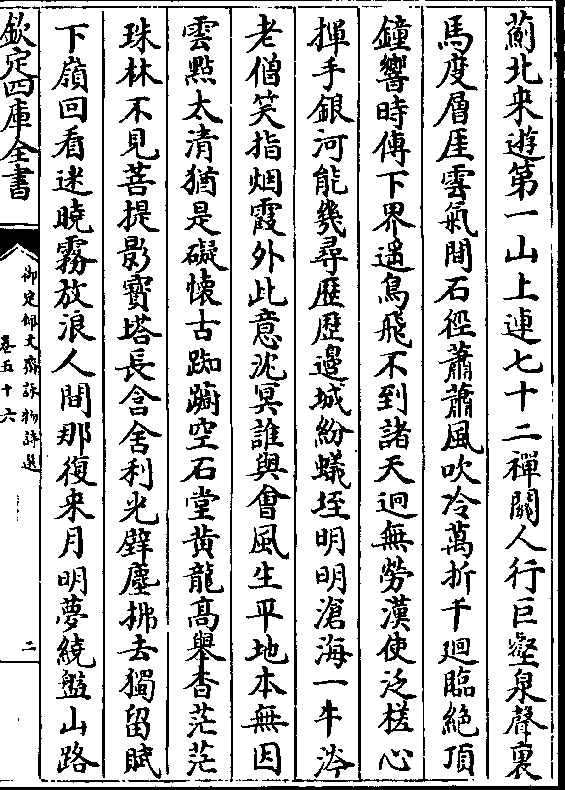 薊北来遊第一山上連七十二禪關人行巨壑泉聲裏
馬度層厓雲氣間石徑蕭蕭風吹冷萬折千廻臨絶頂
鐘響時傳下界遥鳥飛不到諸天迥無勞漢使泛槎心
揮手銀河能幾尋歴歴邉城紛蟻垤明明滄海一牛涔
老僧笑指烟霞外此意沈冥誰與㑹風生平地本無因
雲㸃太清猶是礙懐古踟蹰空石堂黄龍髙舉杳茫茫
珠林不見菩提影寳塔長含舍利光壁塵拂去獨留賦
下嶺回看迷曉霧放浪人間那復来月明夢繞盤山路
欽定四庫全書
御定佩文齋詠物詩選
卷五十六
二